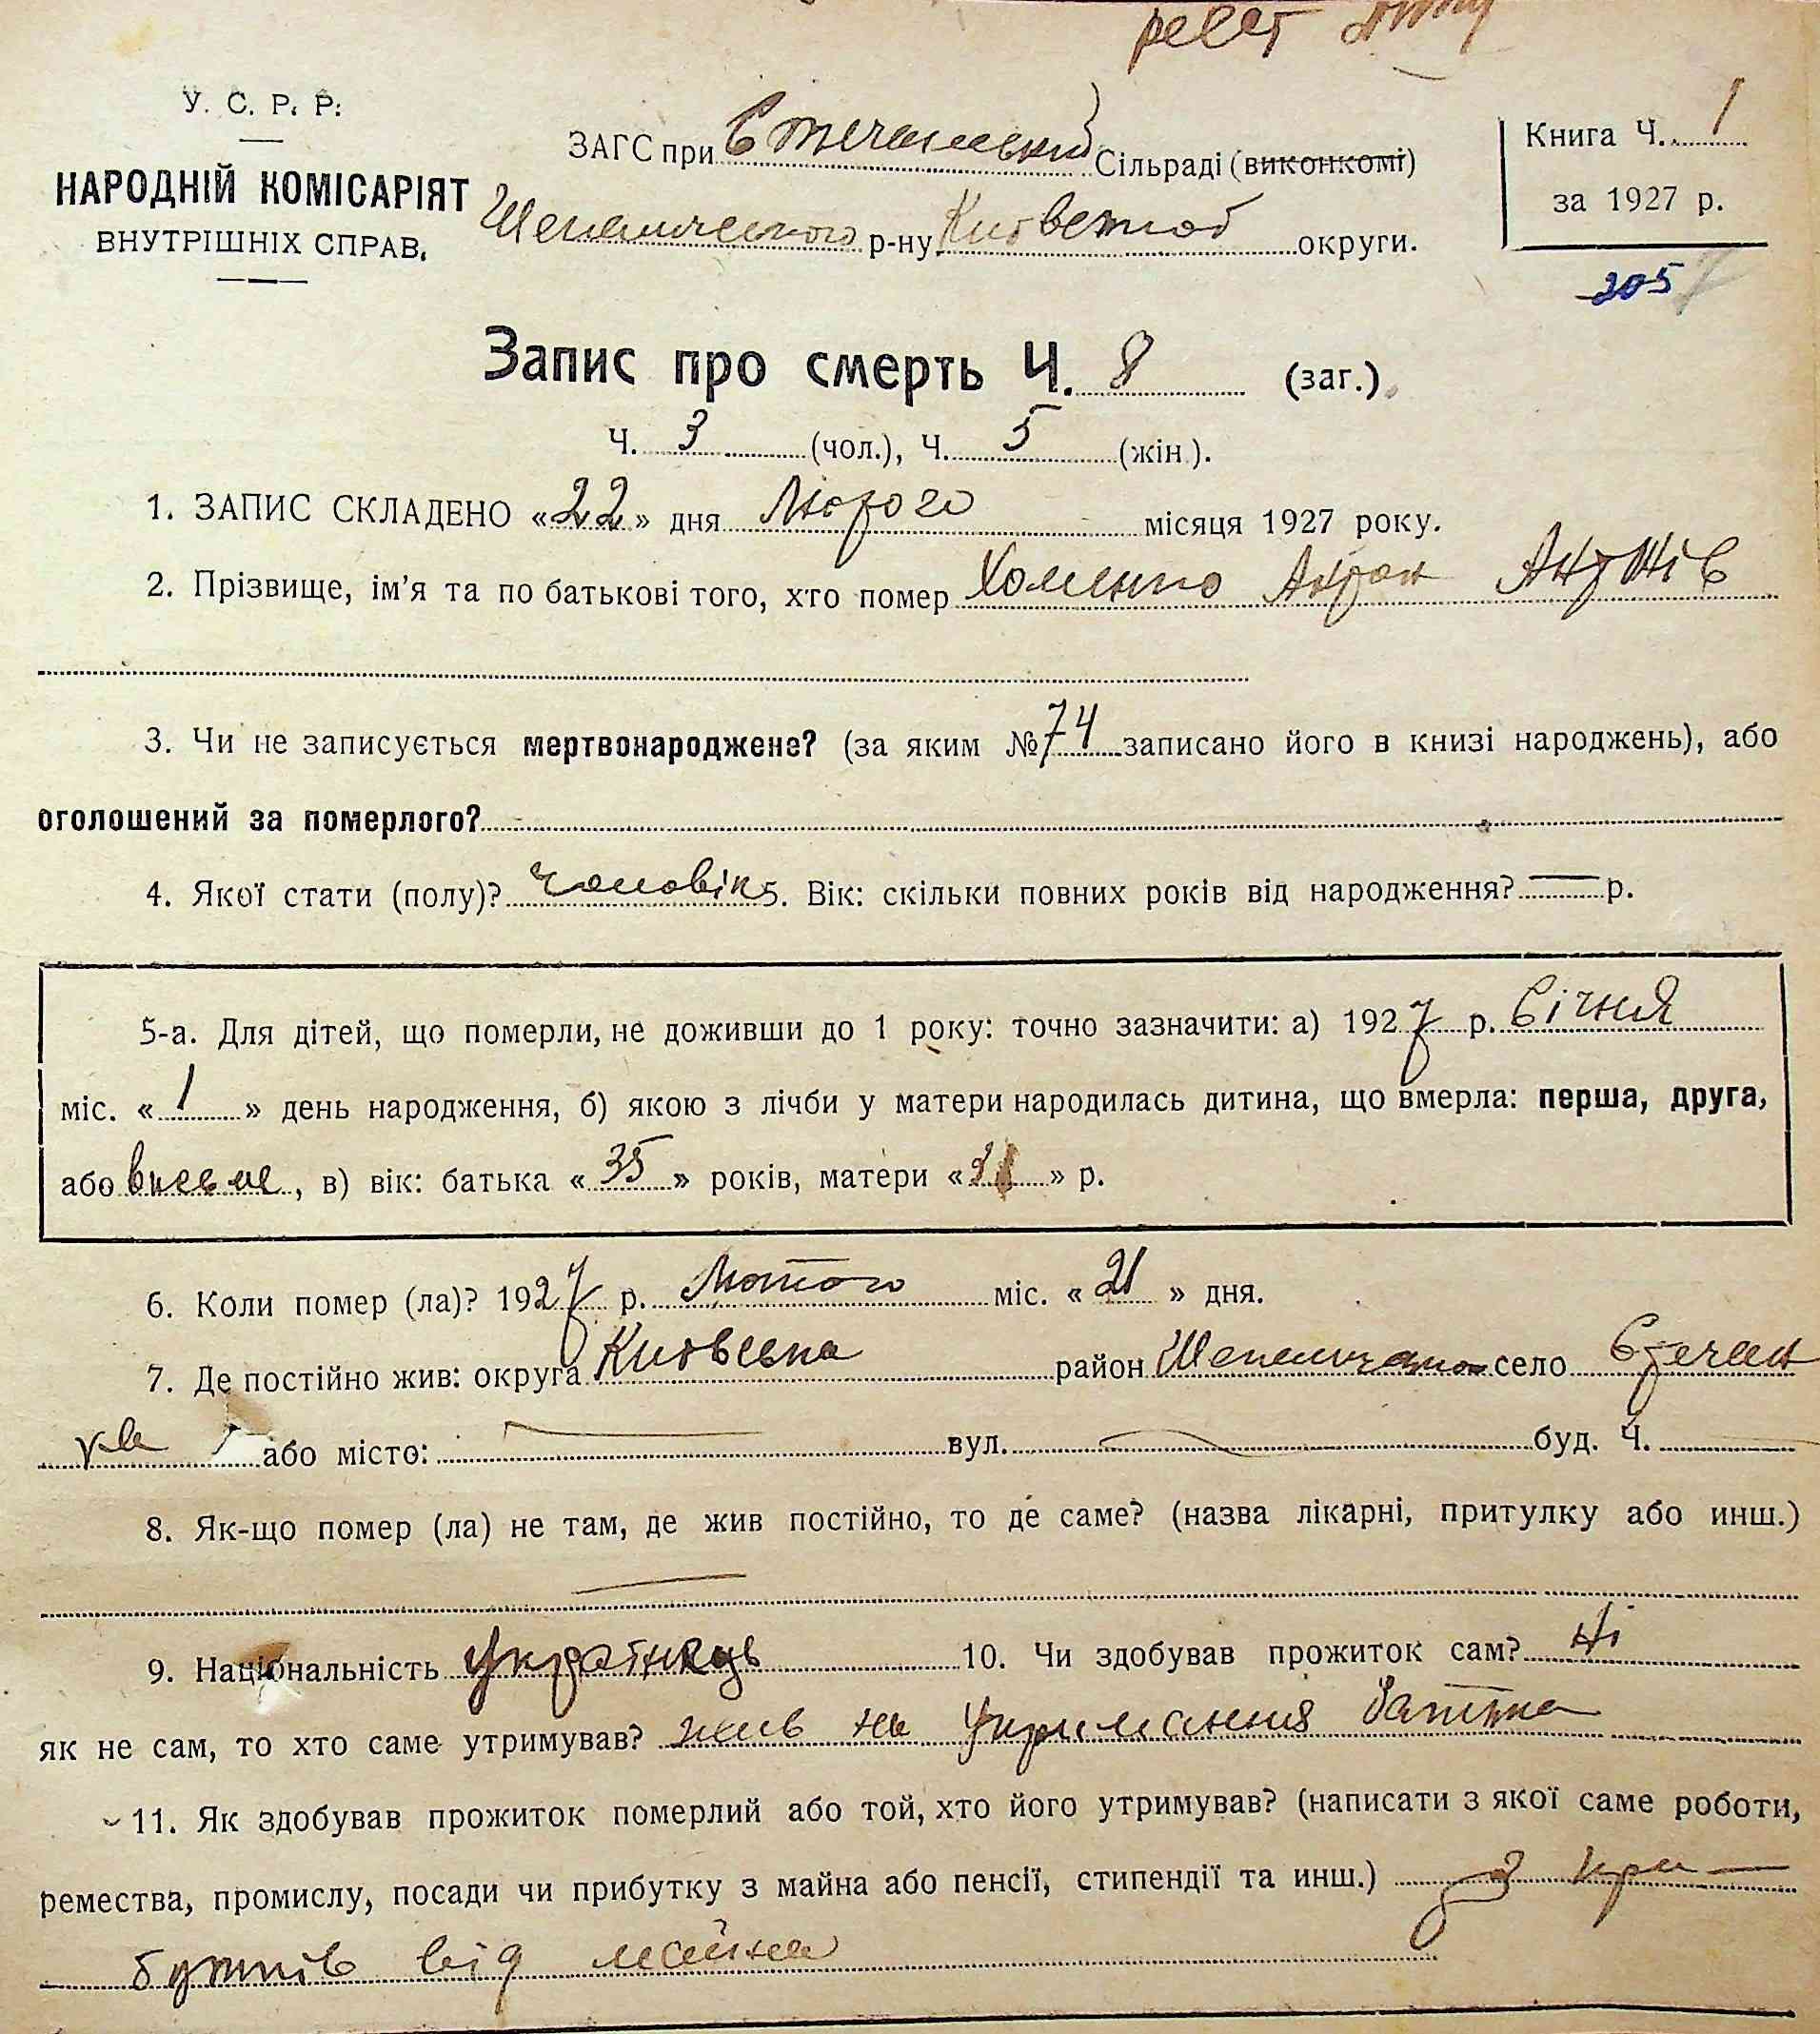 У. С. Р. Р.
НАРОДНІЙ КОМІСАРІЯТ
ВНУТРІШНІХ СПРАВ.
ЗАГС при Стечанській Сільраді (виконкомі)
Шепелического р-ну Киевской округи.
Книга Ч. 1
за 1927 р.
205
Запис про смерть Ч. 8 (заг.)
Ч. 3 (чол.), Ч. 5 (жін.).
1. ЗАПИС СКЛАДЕНО «22» дня Лютого місяця 1927 року.
2. Прізвище, ім'я та по батькові того, хто помер Хоменко Антон
3. Чи не записується мертвонароджене? (за яким № 74 записано його в книзі народжень), або
оголошений за померлого?
4. Якої стати (полу)? чоловік 5. Вік: скільки повних років від народження? — р.
5-а. Для дітей, що померли, не доживши до 1 року: точно зазначити: а) 1927 р. Січня
міс. «1» день народження, б) якою з лічби у матери народилась дитина, що вмерла: перша, друга,
або , в) вік: батька «35» років, матери « » р.
6. Коли помер (ла)? 1927 р. Лютого міс. «21» дня.
7. Де постійно жив: округа Київська район село Стечан
ка або місто: — вул. — буд. Ч. —
8. Як-що помер (ла) не там, де жив постійно, то де саме? (назва лікарні, притулку або инш.)
—
9. Національність Українець 10. Чи здобував прожиток сам? Ні
як не сам, то хто саме утримував? жив на утримання батька
11. Як здобував прожиток померлий або той, хто його утримував? (написати з якої саме роботи,
ремества, промислу, посади чи прибутку з майна або пенсії, стипендії та инш.) З при—
бутків від майна